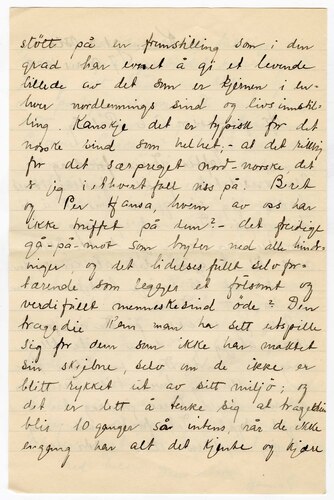 støtt på en fremstilling som i den
grad har evnet å gi et levende
billede av det som er kjernen i en-
hver nordlennings sind og livsinnstil-
ling. Kanskje det er typisk for det
norske sind som helhet, - at det
for det særpreget nord-norske det
er jeg i ethvert fall viss på. Beret
og Per Hansa, hvem av oss har
ikke truffet på dem? - det freidige
gå-på-mot som bryter ned alle hind-
ringer, og det lidelsesfullt selvfor-
tærende som legger et følsomt og
verdifullt menneskesind øde? Den
tragedie kan man ha sett utspille
sig for dem som ikke har maktet
sin skjebne, selv om de ikke er
blitt rykket ut av sitt miljø; og
det er lett å tenke sig at tragedien
blir 10 ganger så intens, når de ikke
engang har alt det kjente og kjære